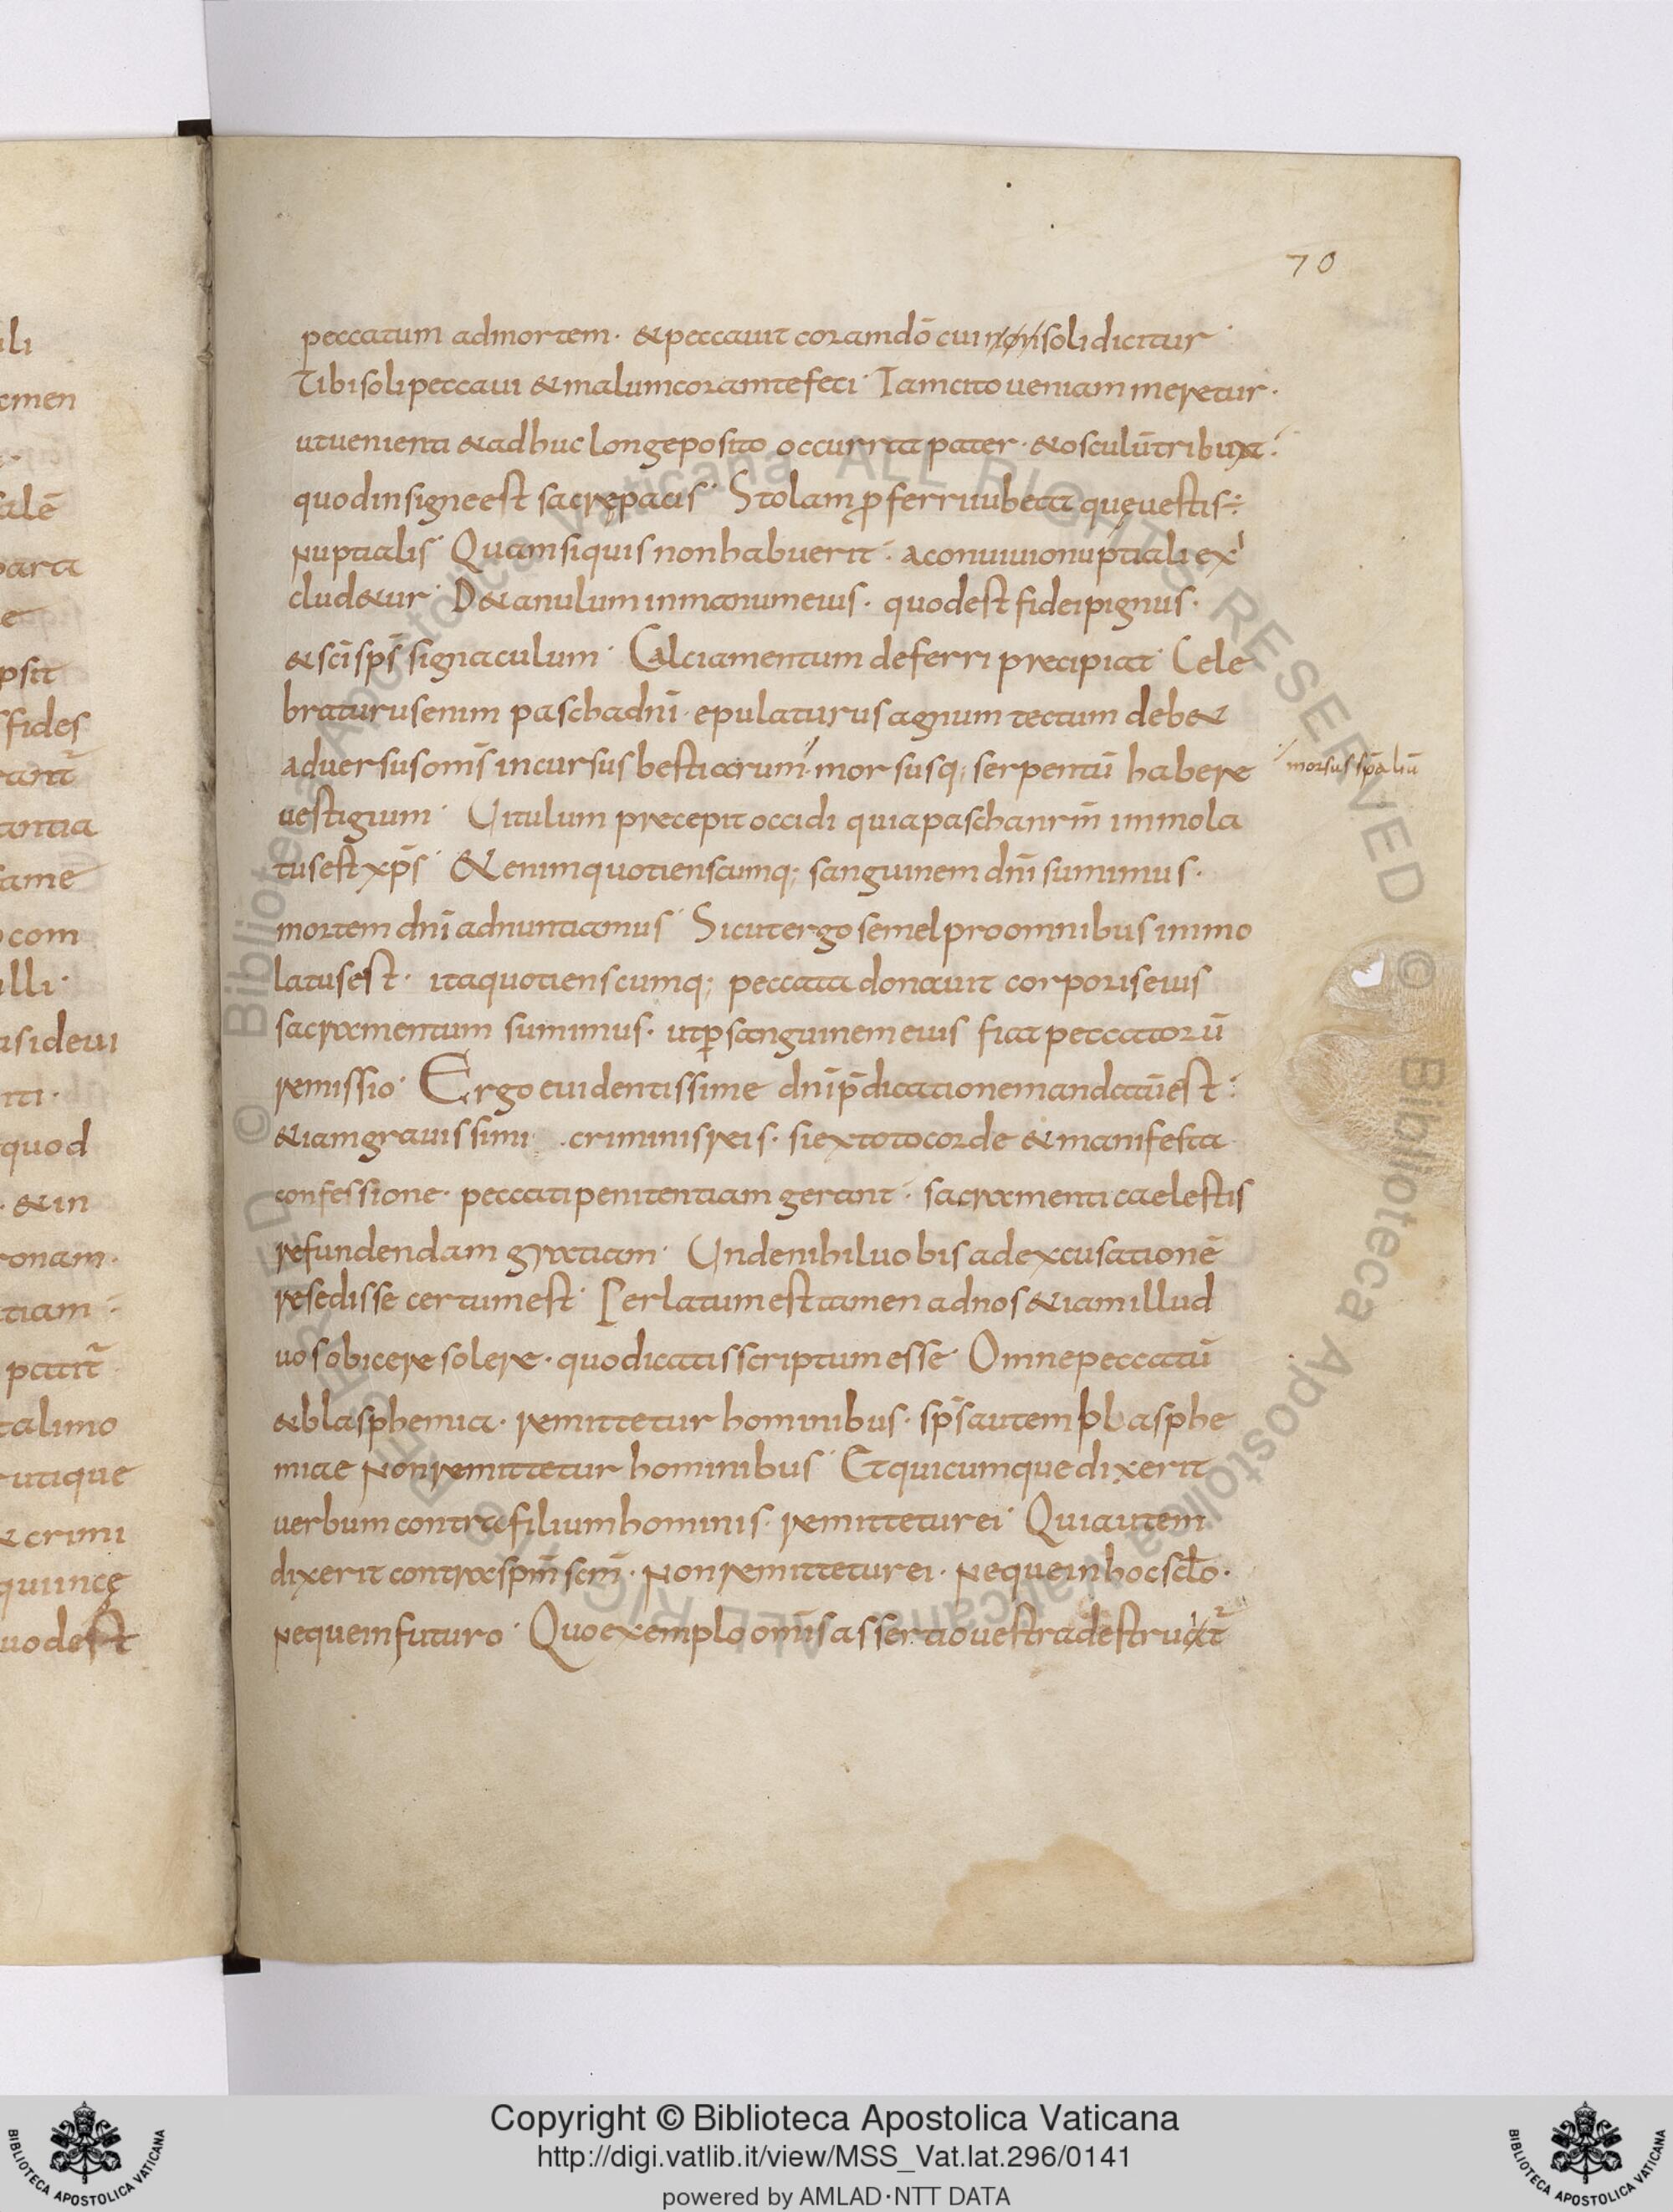 ili
cmen
alē
para
e
psit
fides
rant᷑
antia
fame
com
illi·
asideui
nti·
quod
· &in
ronam·
tiam
patit᷑
talimo
rutique
&crimi
quiincę
uodest
70
peccatum admortem· &peccauit coramdō cui non soli dicitur·
Tibi soli peccaui &malum coram te feci· Iam cito ueniam meretur·
ut uenienti &adhuc longe posito occurrat pater· &osculū tribuat·
quod insigne est sacrę pacis· Stolam ꝓferri iubeat quę uestis ÷
Nuptialis· Quam si quis non habuerit· a conuiuio nuptiali ex
clud&ur· D& anulum in manum eius· quod est fidei pignus·
& sc̄i sp̄s signaculum· Calciamentum deferri precipiat· Cele
braturus enim pascha dn̄i· epulaturus agnum tectum deb&
aduersus om̄s incursus bestiarum· morsusq; serpentū habere
morsus sp̄aliū
uestigium· Uitulum precepit occidi quia pascha nr̄m immola
tus est xp̄s· &enim quotienscumq; sanguinem dn̄i sumimus·
mortem dn̄i adnuntiamus· Sicut ergo semel pro omnibus immo
latus est· ita quotienscumq; peccata donauit corporis eius
sacramentum sumimus· ut ꝑ sanguinem eius fiat peccatorū
remissio· Ergo euidentissime dn̄i p̄dicatione mandatū est·
&iam grauissimi criminis reis· si ex toto corde &manifesta
confessione· peccati penitentiam gerant· sacramenti caelestis
refundendam gratiam· Unde nihil uobis ad excusationē
resedisse certum est· Perlatum est tamen ad nos &iam illud
uos obicere solere· quod icatis scriptum esse· Omne peccatū
&blasphemia· remittetur hominibus· sp̄s autem blasphe
miae non remittetur hominibus· Et quicumque dixerit
uerbum contra filium hominis· remittetur ei· Qui autem
dixerit contra sp̄m sc̄m· Non remittetur ei· Neque in hoc scło·
Neque in futuro· Quo exemplo om̄is assertio uestra destruit᷑
Copyright © Biblioteca Apostolica Vaticana
http://digi.vatlib.it/view/MSS_Vat.lat.296/0141
powered by AMLAD·NTT DATA